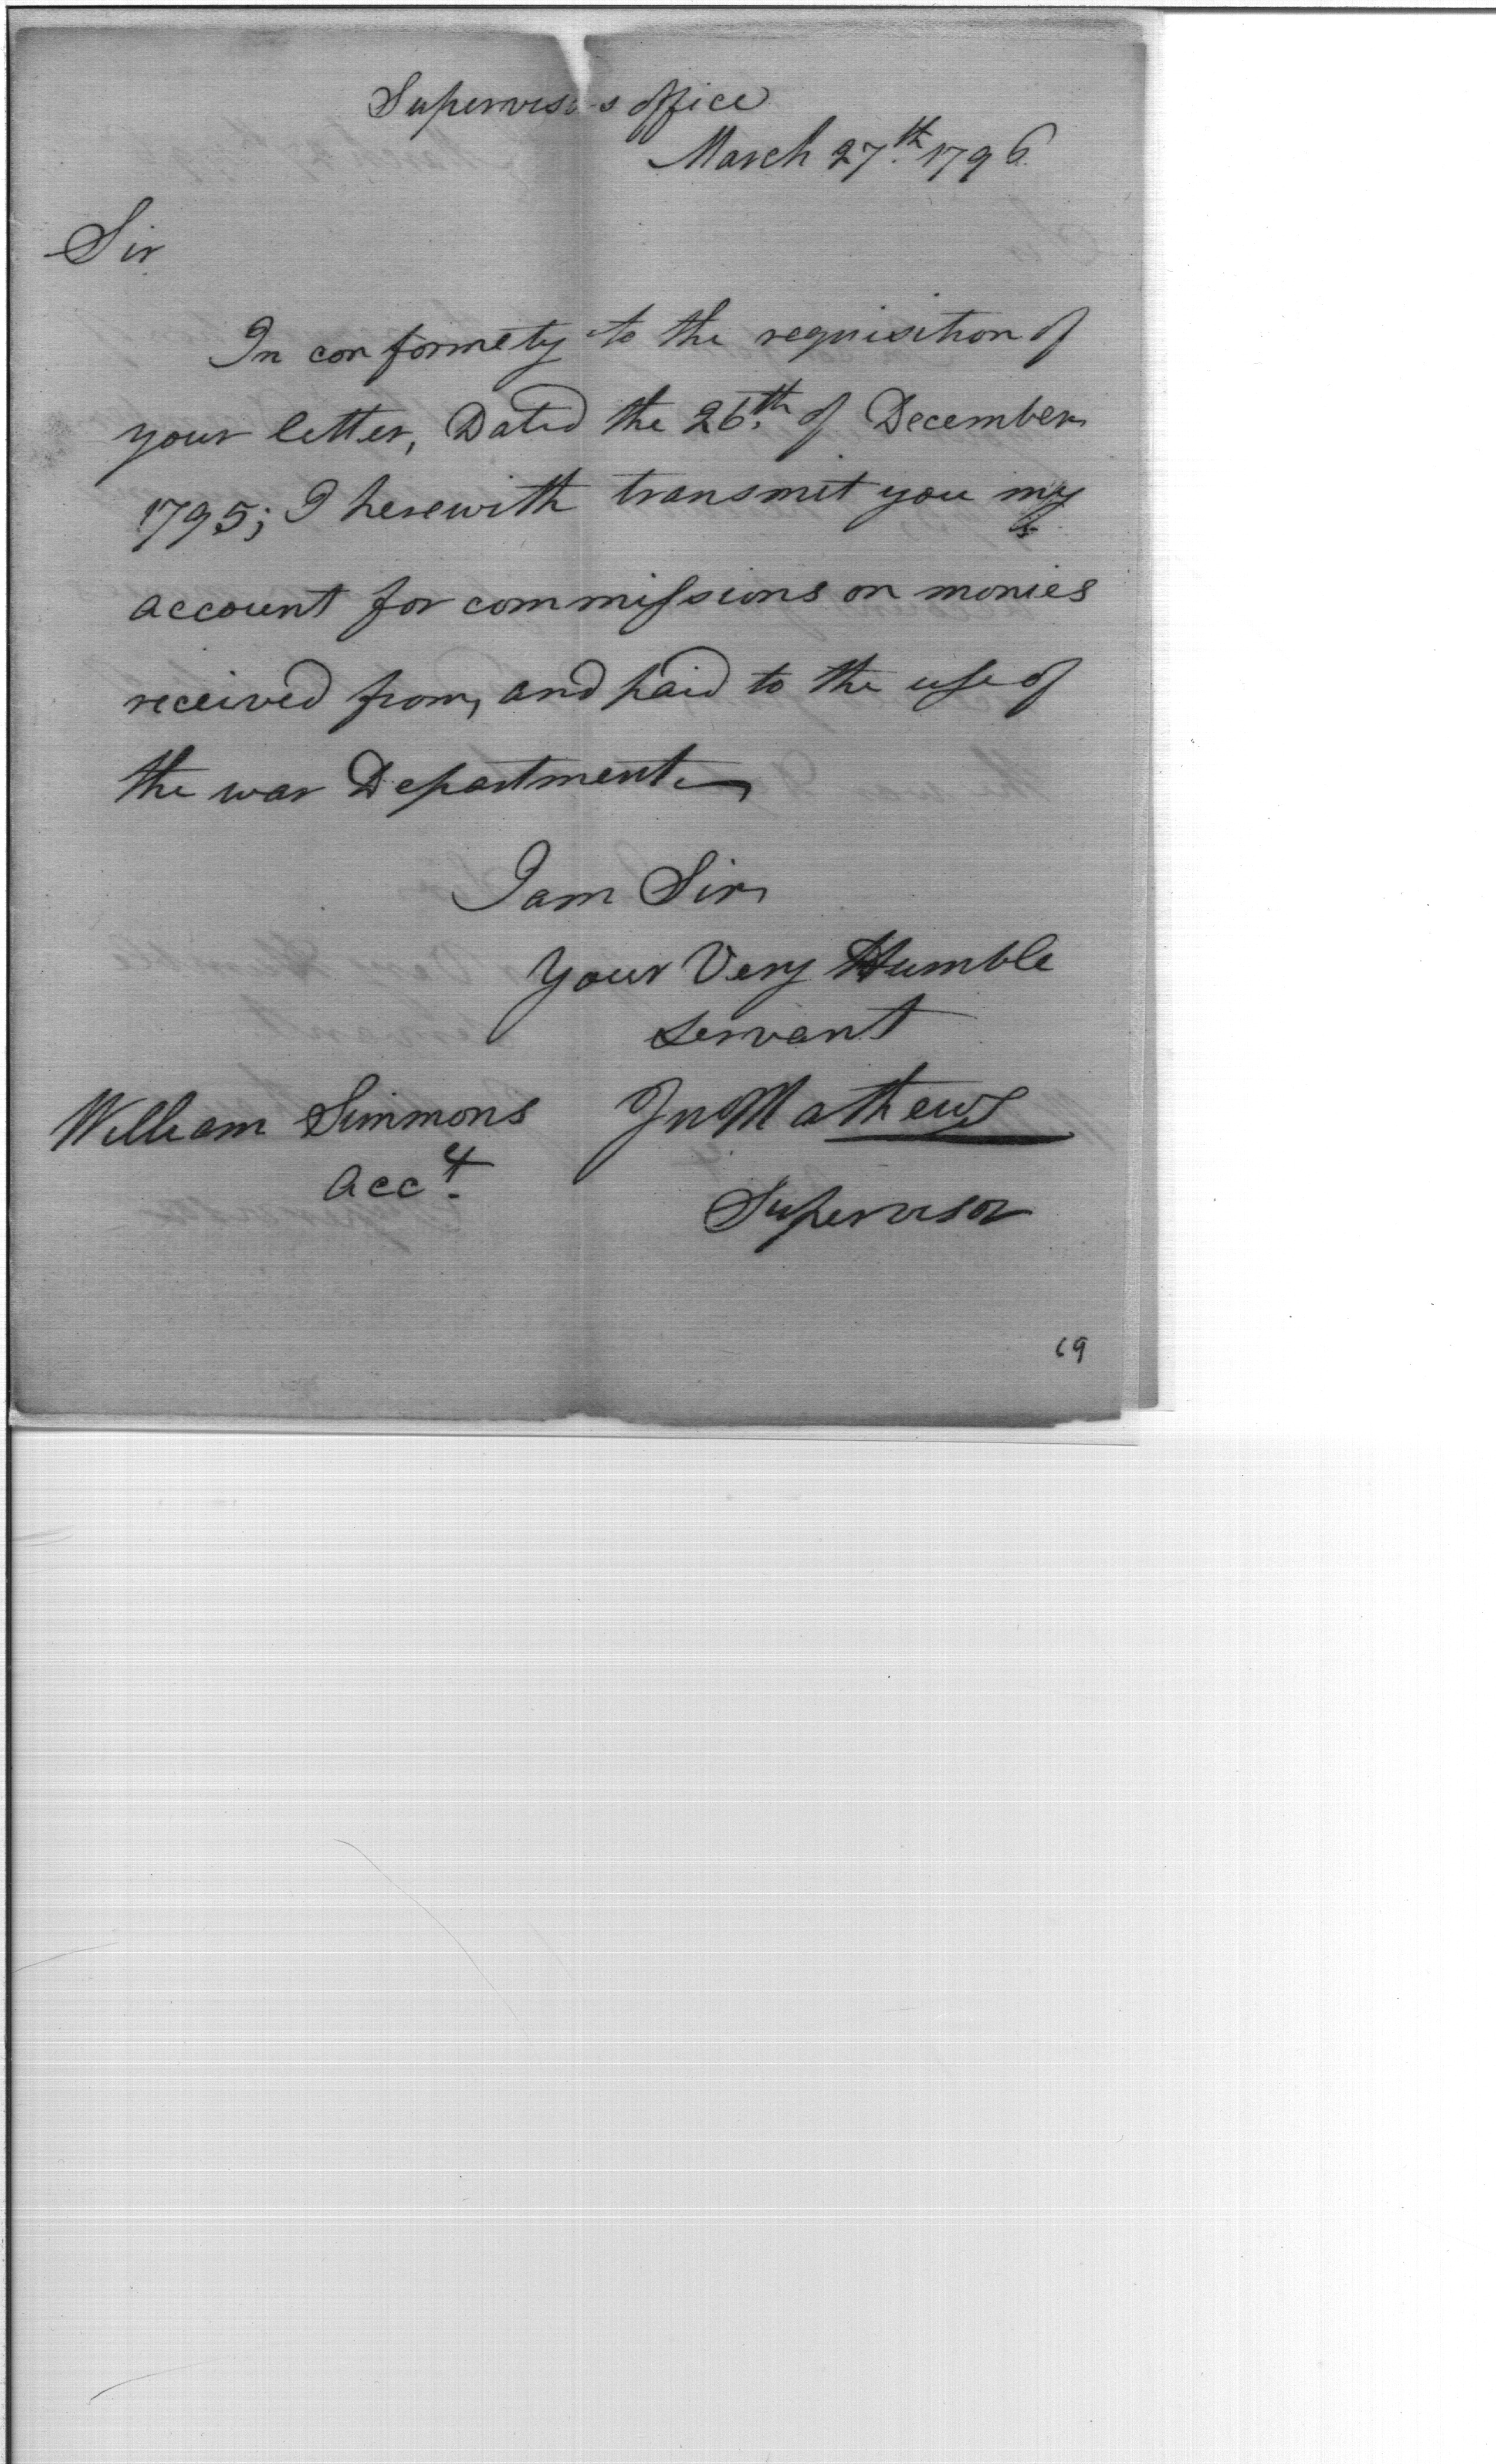 Supervisors office
March 27th. 1796.
Sir
In conformety to the requisition of
your letter, Dated the 26th. of December
1795; I herewith transmit you my
account for commissions on monies
received from, and paid to the use of
the war Department
I am Sir,
Your Very Humble
servant
William Simmons Jno Mathews
Acct.
Supervisor
69